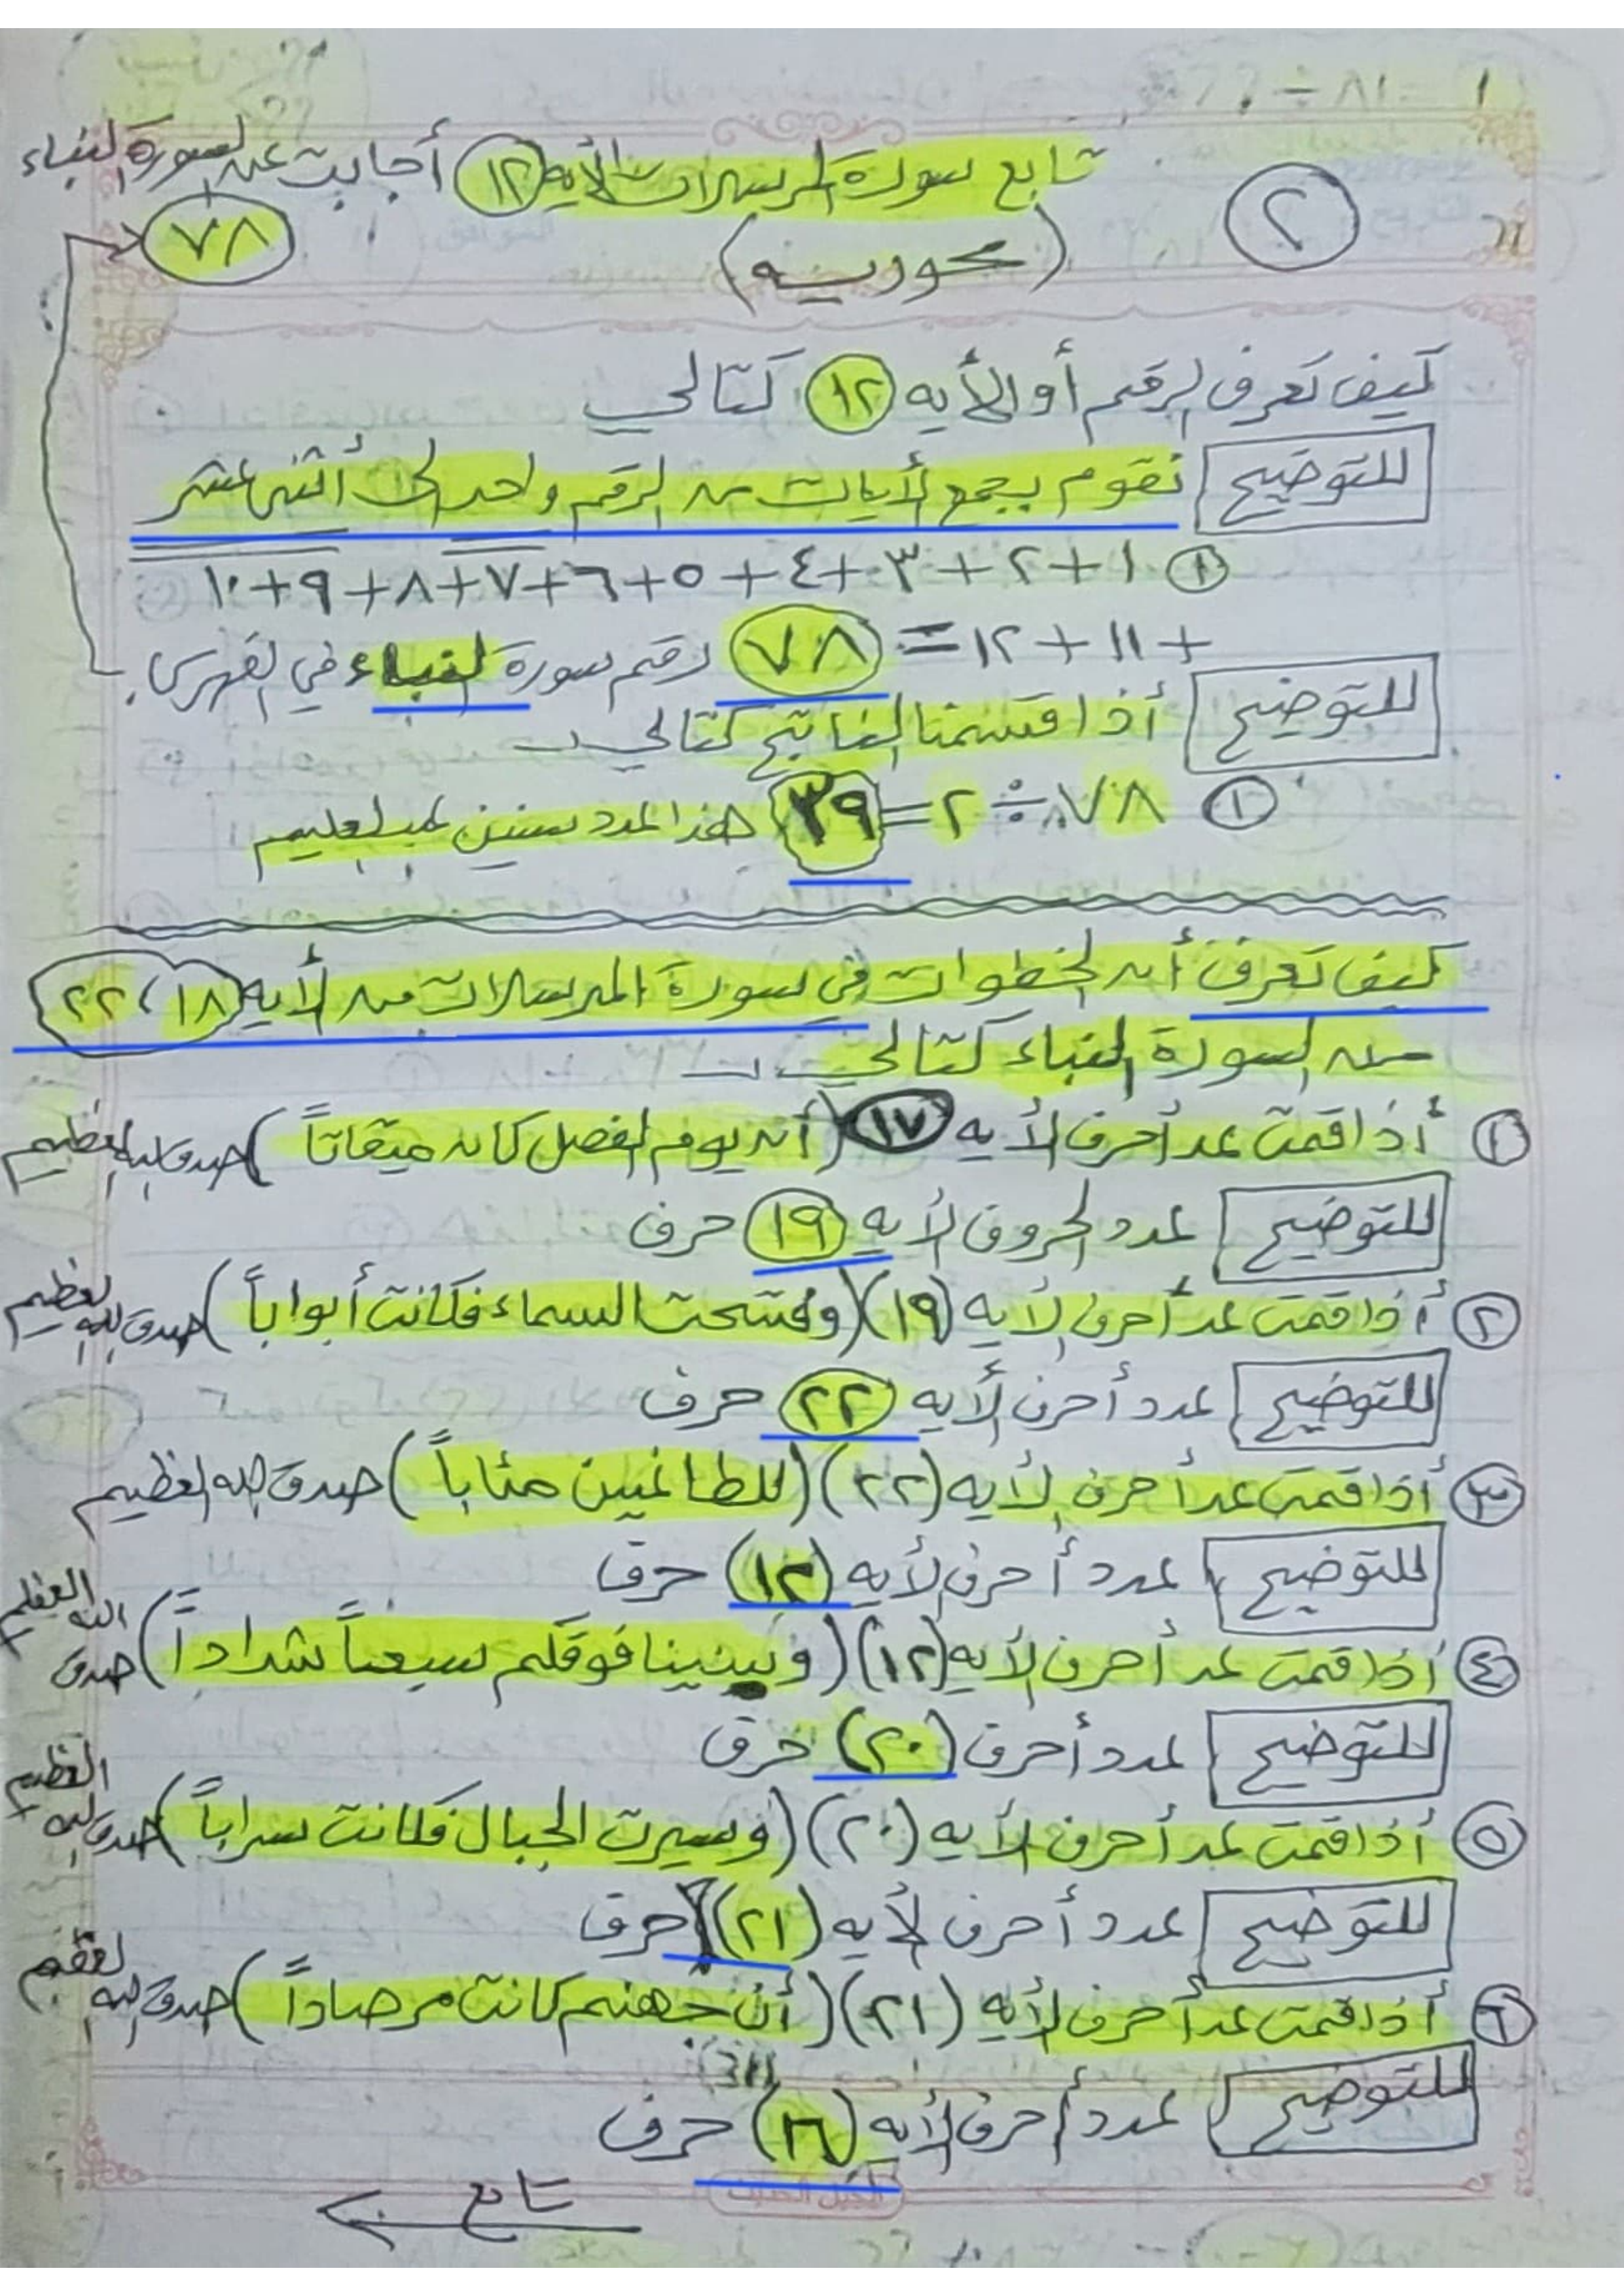 تابع سورة المرسلات الأيه ١٢ أجابت عن السورة النباء
٢
٧٨
(محوريه)
كيف تعرف الرقم أو الأيه ١٢ كتالي
للتوضيح نقوم بجمع الأيات من الرقم واحد الى أثنى عشر
١ ١+٢+٣+٤+٥+٦+٧+٨+٩+١٠
+١١+١٢= ٧٨ رقم سورة النباء في الفهرس.
للتوضيح أذا قسمنا الناتج كتالي
١ ٧٨÷٢=٣٩ هذا العدد سنين
كيف تعرف أن الخطوات في سورة المرسلات من الأيه ١٨، ٢٢
من السورة النباء كتالي
١ أذا قمت عد أحرف الأيه ١٧ (أن يوم الفصل كان ميقاتاً) صدق الله العظيم
للتوضيح عدد الحروف الأيه ١٩ حرف
٢ أذا قمت عد أحرف الأيه (١٩) (وفتحت السماء فكانت أبواباً) صدق الله العظيم
للتوضيح عدد أحرف الأيه ٢٢ حرف
٣ أذا قمت عد أحرف الأيه (٢٢) (للطاغين مئاباً) صدق الله العظيم
للتوضيح عدد أحرف الأيه (١٢) حرف
٤ أذا قمت عد أحرف الأيه (١٢) (وبنينا فوقكم سبعاً شداداً) صدق الله العظيم
للتوضيح عدد أحرف (٢٠) حرف
٥ أذا قمت عد أحرف الأيه (٢٠) (وسيرت الجبال فكانت سراباً) صدق الله العظيم
للتوضيح عدد أحرف الأيه (٢١) حرف
٦ أذا قمت عد أحرف الأيه (٢١) (أن جهنم كانت مرصاداً) صدق الله العظيم
للتوضيح عدد أحرف الأيه حرف
تابع